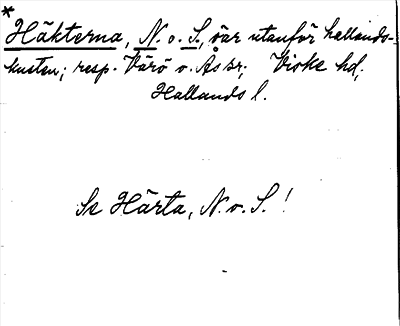 *
Häkterna, N. o. S., öar utanför hallands-
kusten; resp. Värö o. Ås sr; Viske hd;
Hallands l.
Se Härta, N. o. S. !